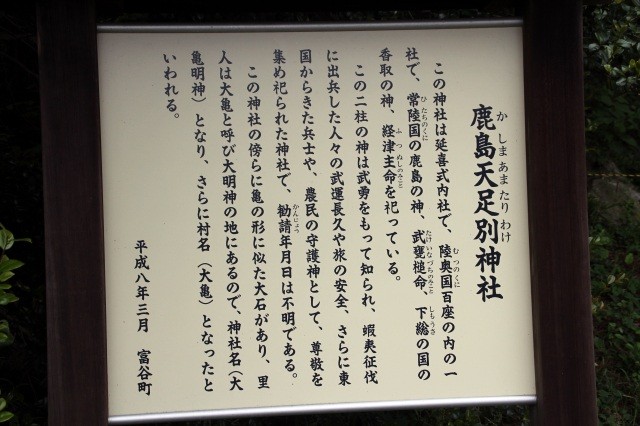 鹿島天足別神社
かしまあまたりわけ
この神社は延喜式内社で、陸奥国百座の内の一
むつのくに
社で、常陸国の鹿島の神、武甕槌命、下総の国の
ひたちのくに
たけいなづちのみこと
しもうさ
香取の神、経津主命を祀っている。
ふつぬしのみこと
この二柱の神は武勇をもって知られ、蝦夷征伐
に出兵した人々の武運長久や旅の安全、さらに東
国からきた兵士や、農民の守護神として、尊敬を
集め祀られた神社で、勧請年月日は不明である。
かんじょう
この神社の傍らに亀の形に似た大石があり、里
人は大亀と呼び大明神の地にあるので、神社名(大
亀明神)となり、さらに村名(大亀)となったと
いわれる。
平成八年三月 富谷町